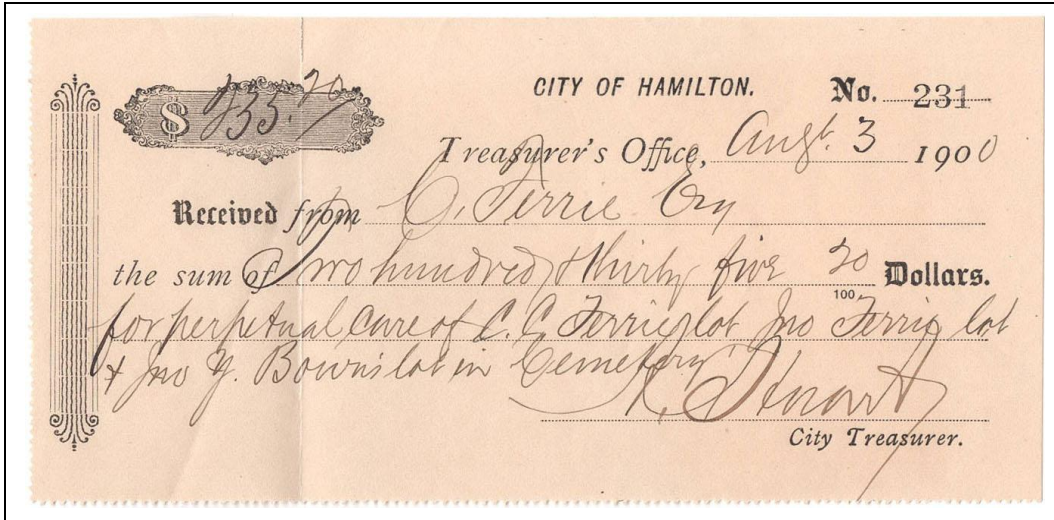 CITY OF HAMILTON. No. 231
$ 235.20
Treasurer's Office, Augt. 3 1900
Received from C. Ferrie Esq
the sum of Two hundred & thirty five 20/100 Dollars.
for perpetual care of C. C. Ferries lot Jno Ferries lot
& Jno Y. Bown's lot in Cemetery.
A. Stuart
City Treasurer.